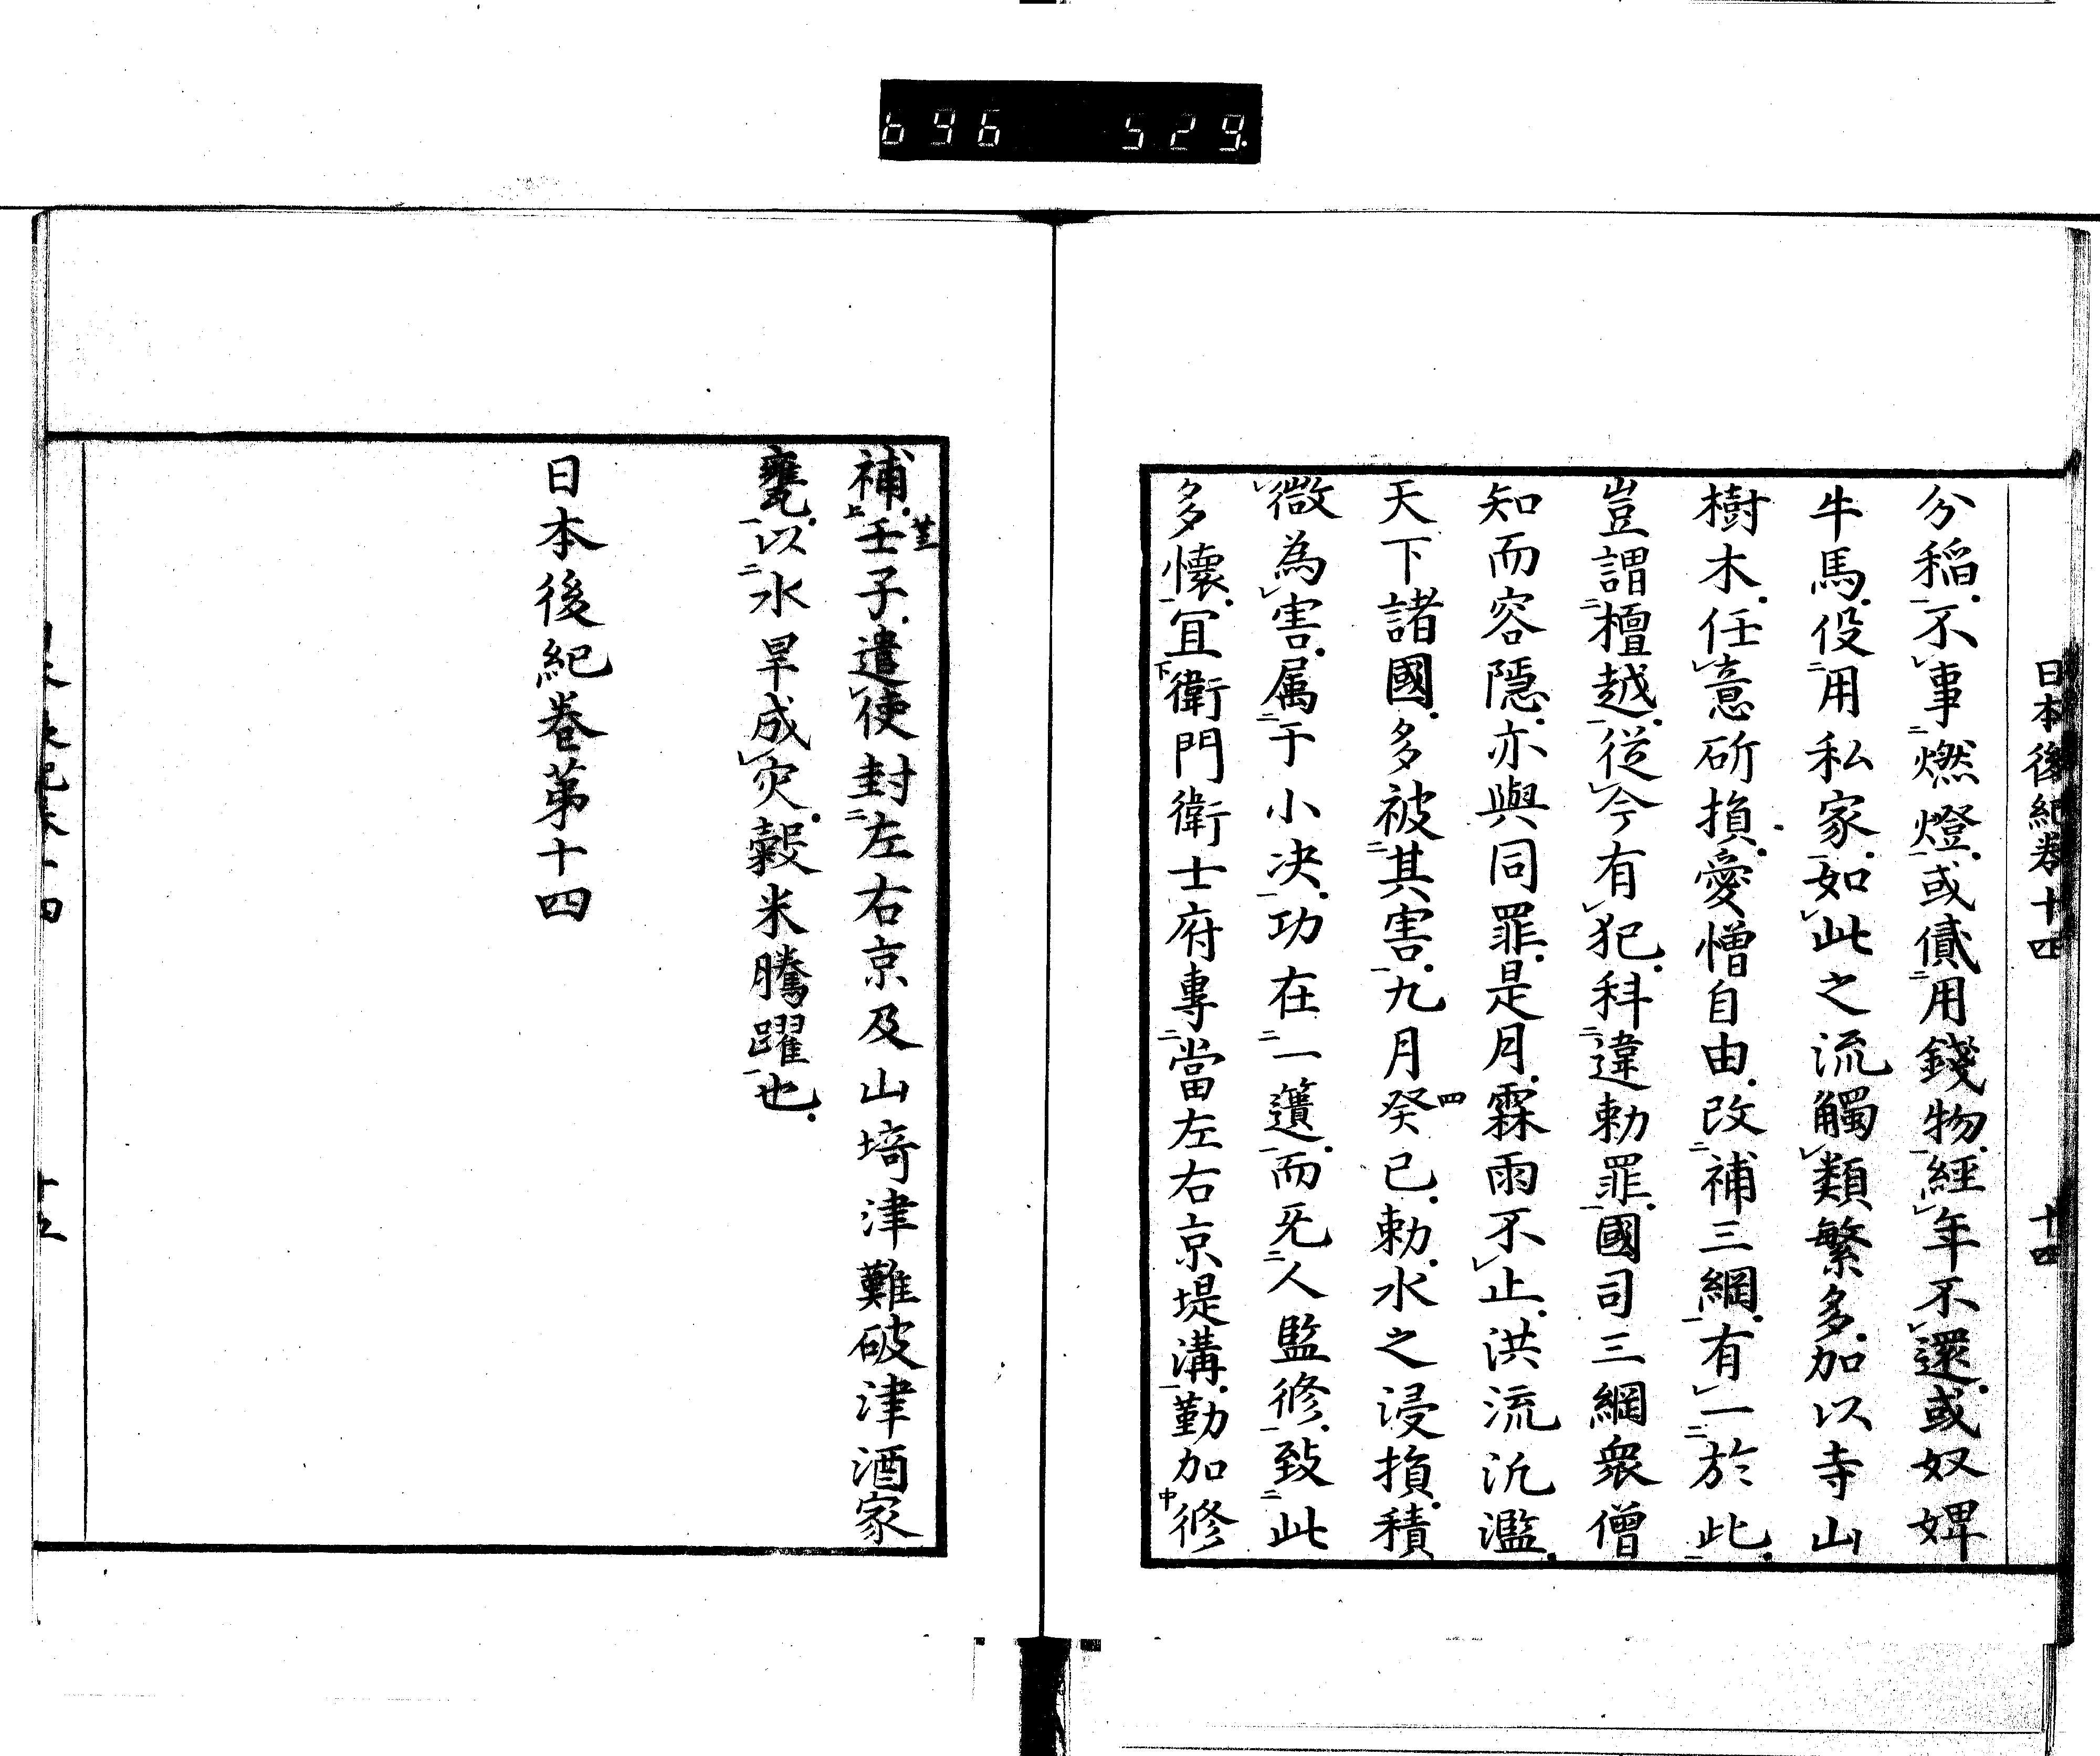 696 529
日本後紀卷十四 十四
分稲不事燃燈或貣用錢物經年不還或奴婢
牛馬役用私家如此之流觸類繁多加以寺山
樹木任意斫損愛憎自由改補三綱有一於此
豈謂檀越從今有犯科違勅罪國司三綱衆僧
知而容隱亦與同罪是月霖雨不止洪流汎濫
天下諸國多被其害九月癸四巳勅水之浸損積
微為害属于小决功在一簣而旡人監修致此
多懷冝衛門衛士府專當左右京堤溝勤加修
補壬子遣使封左右京及山埼津難破津酒家
甕以水旱成灾穀米騰躍也
日本後紀巻苐十四